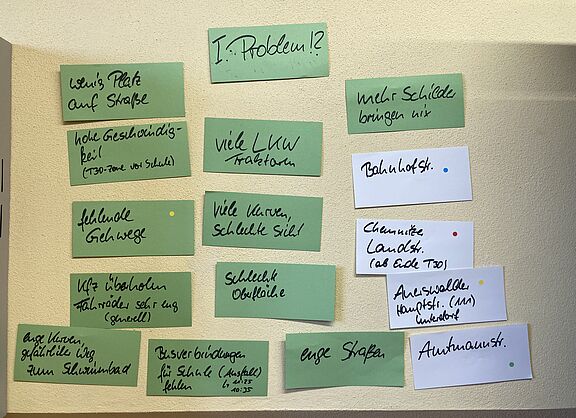 I. Problem!?
wenig Platz
auf Straße
hohe Geschwindig-
keit
(T30-Zone vor Schule)
fehlende
Gehwege
Kfz überholen
Fahrräder sehr eng
(generell)
enge Kurven,
gefährlicher Weg
zum Schwimmbad
viele LKW
Traktoren
viele Kurven,
schlechte Sicht
schlechte
Oberfläche
Busverbindungen
für Schule (Ausfall)
fehlen
10:35
enge Straßen
mehr Schilder
bringen nix
Bahnhofstr.
Chemnitzer
Landstr.
(ab Ende T30)
Auerswalder
Hauptstr. (111)
Amtmannstr.